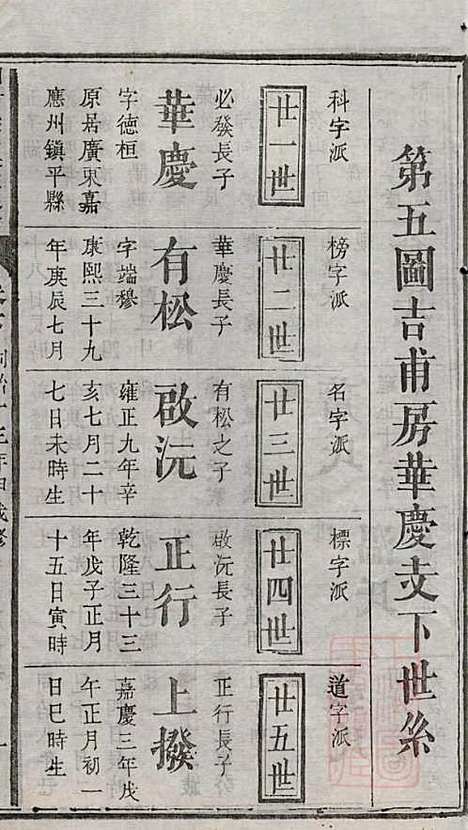 第五圖吉甫房華慶支下世糸
科字派
廿一世
必發長子
華慶
字德桓
原居廣東嘉
應州鎮平縣
榜字派
廿二世
華慶長子
有松
字端穆
康熙三十九
年庚辰七月
名字派
廿三世
有松之子
啟沅
雍正九年辛
亥七月二十
七日未時生
標字派
廿四世
啟沅長子
正行
乾隆三十三
年戊子正月
十五日寅時
道字派
廿五世
正行長子
上撥
嘉慶三年戊
午正月初一
日巳時生